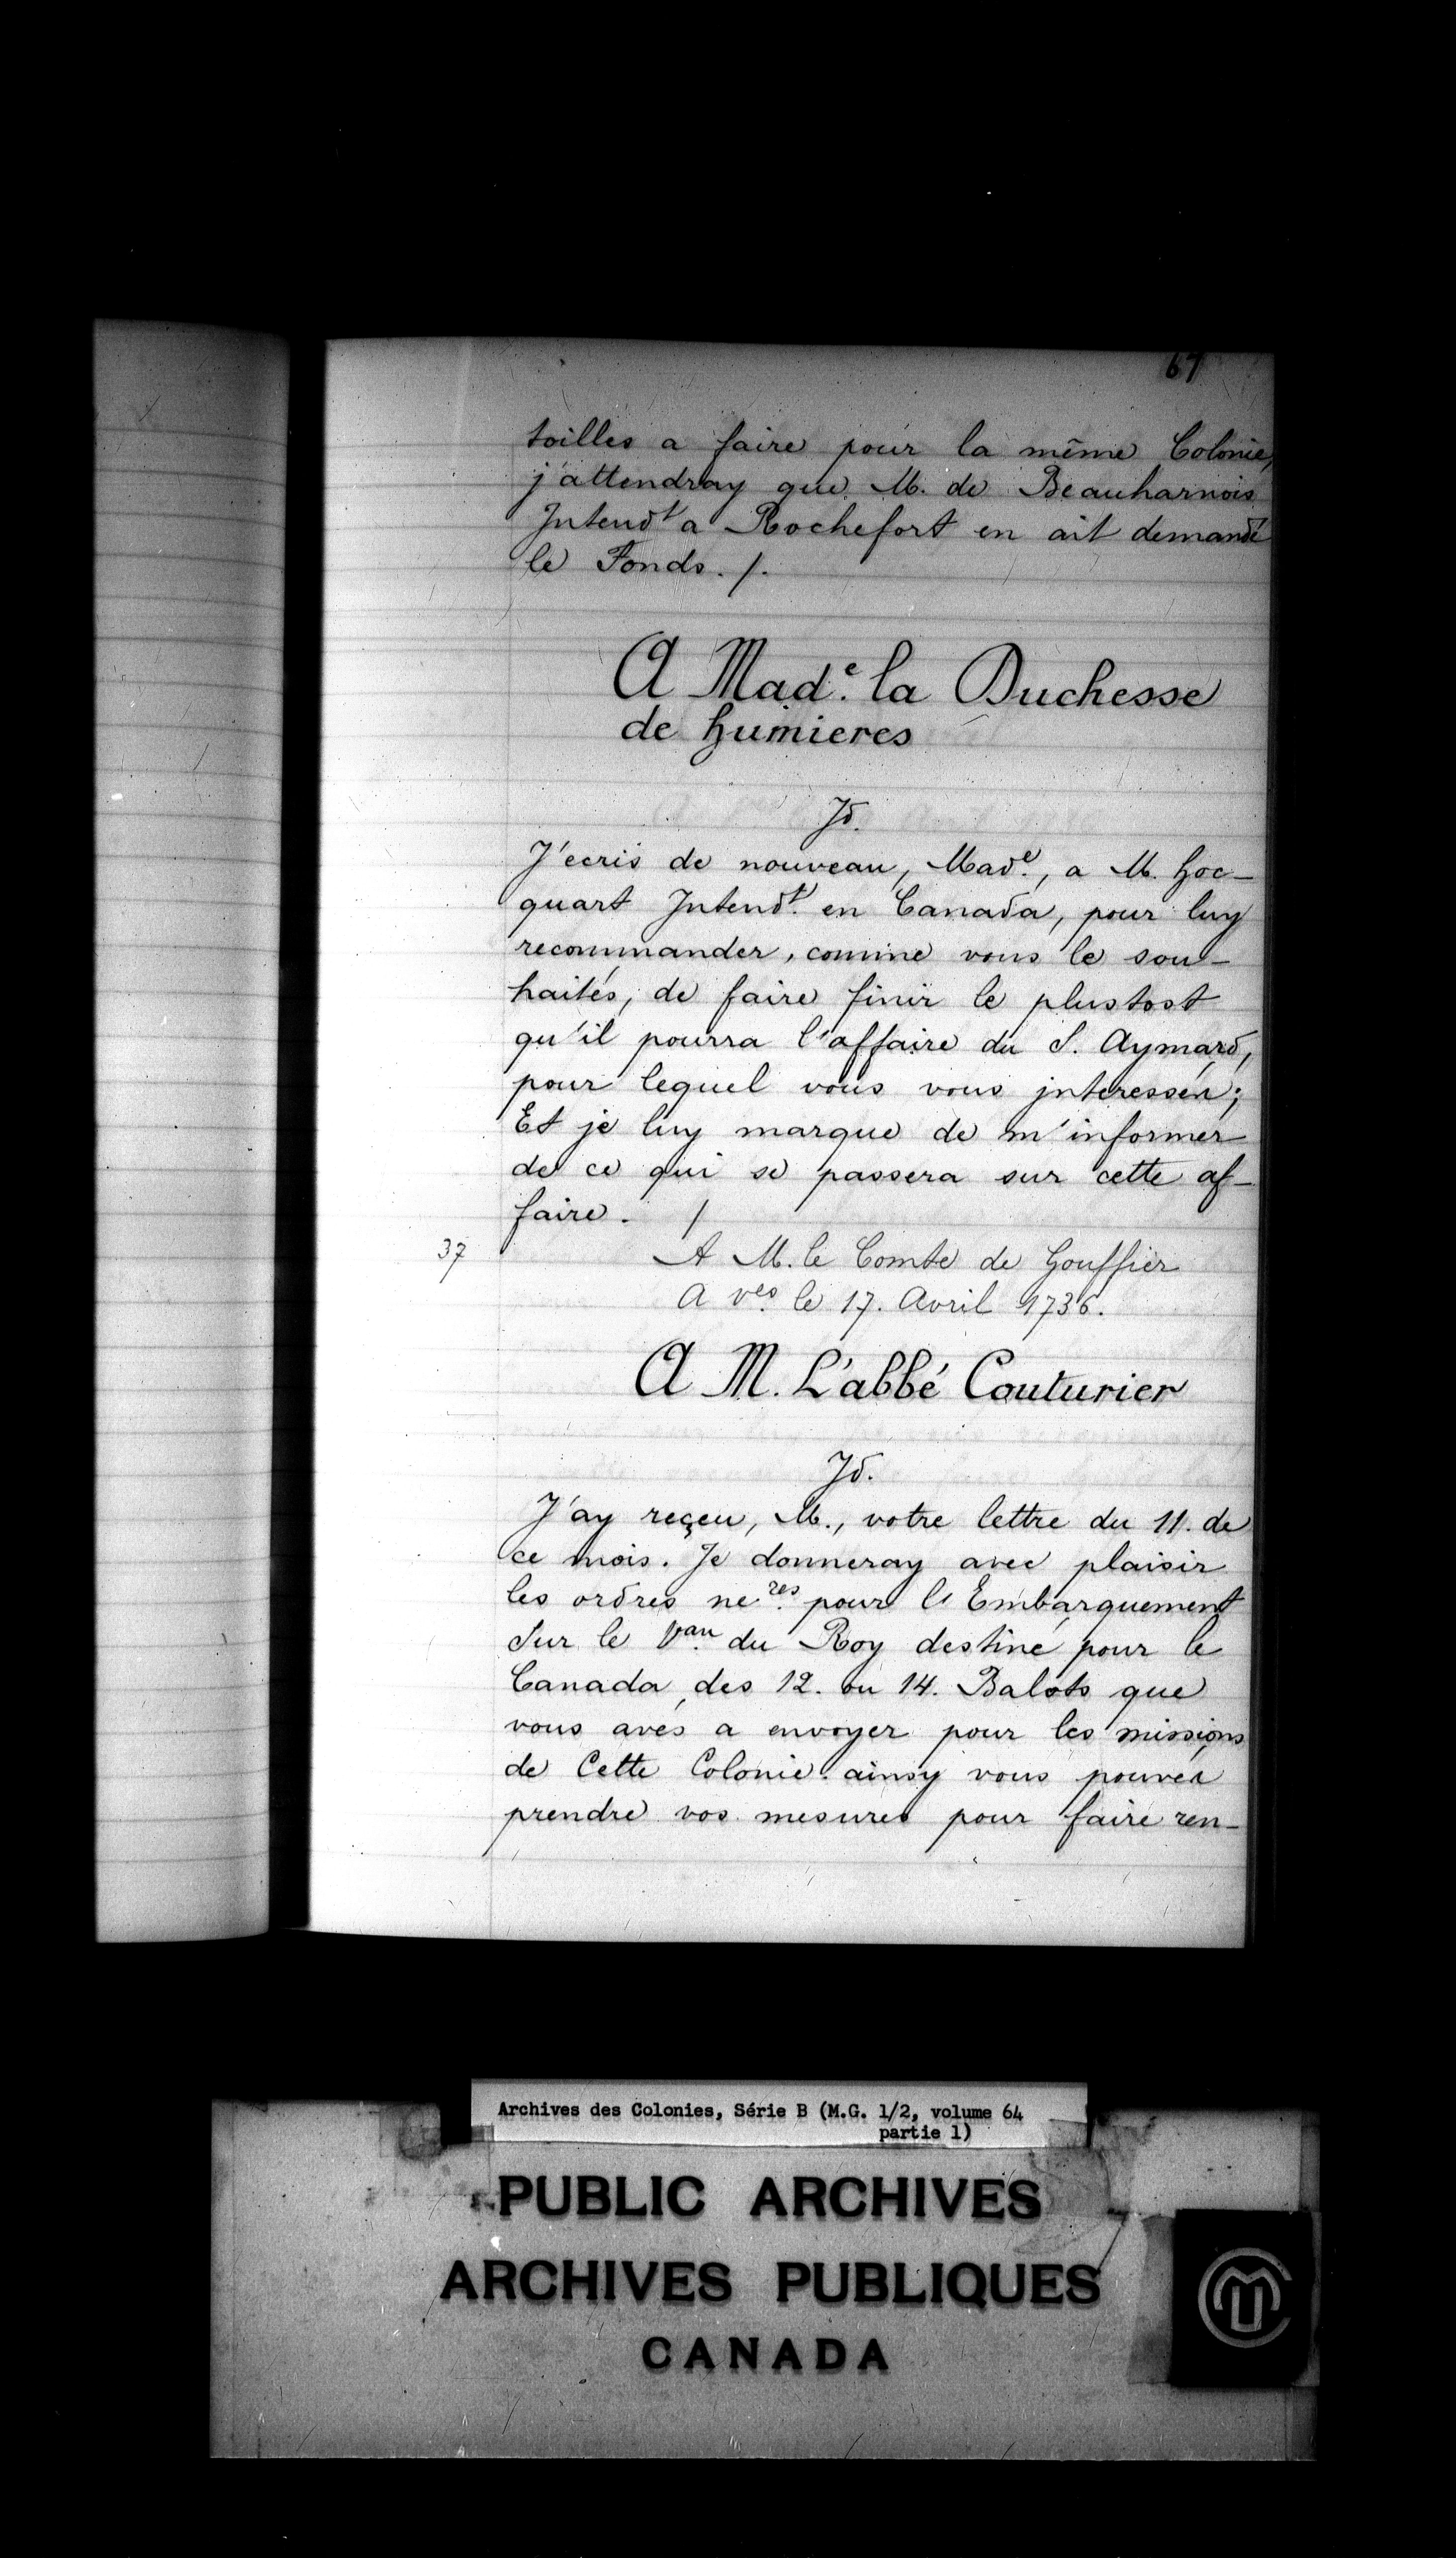 67
toilles a faire pour la même Colonie,
j'attendray que M. de Beauharnois
Intendt a Rochefort en ait demandé
le Fonds. /.
A Made. la Duchesse
de humieres
Id.
J'ecris de nouveau, Made., a M. hoc-
quart Intendt. en Canada, pour luy
recommander, comme vous le sou-
haités, de faire finir le plustost
qu'il pourra l'affaire du S. Aymard,
pour lequel vous vous interessés;
Et je luy marque de m'informer
de ce qui se passera sur cette af-
faire. /
37
A M. le Comte de Gouffier
A ves. le 17. Avril 1736.
A M. L'abbé Couturier
Id.
J'ay reçeu, M., votre lettre du 11. de
ce mois. Je donneray avec plaisir
les ordres neres. pour l'Embarquement
Sur le Vau. du Roy destiné pour le
Canada des 12. ou 14. Balots que
vous avés a envoyer pour les missions
de Cette Colonie. ainsy vous pouvés
prendre vos mesures pour faire ren-
Archives des Colonies, Série B (M.G. 1/2, volume 64
partie 1)
PUBLIC ARCHIVES
ARCHIVES PUBLIQUES
CANADA